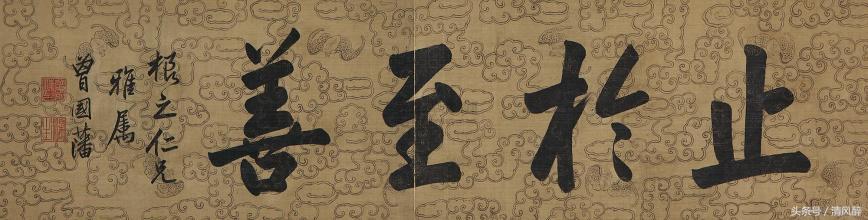 止於至善
根之仁兄
雅屬
曾國藩
头条号／清风醉